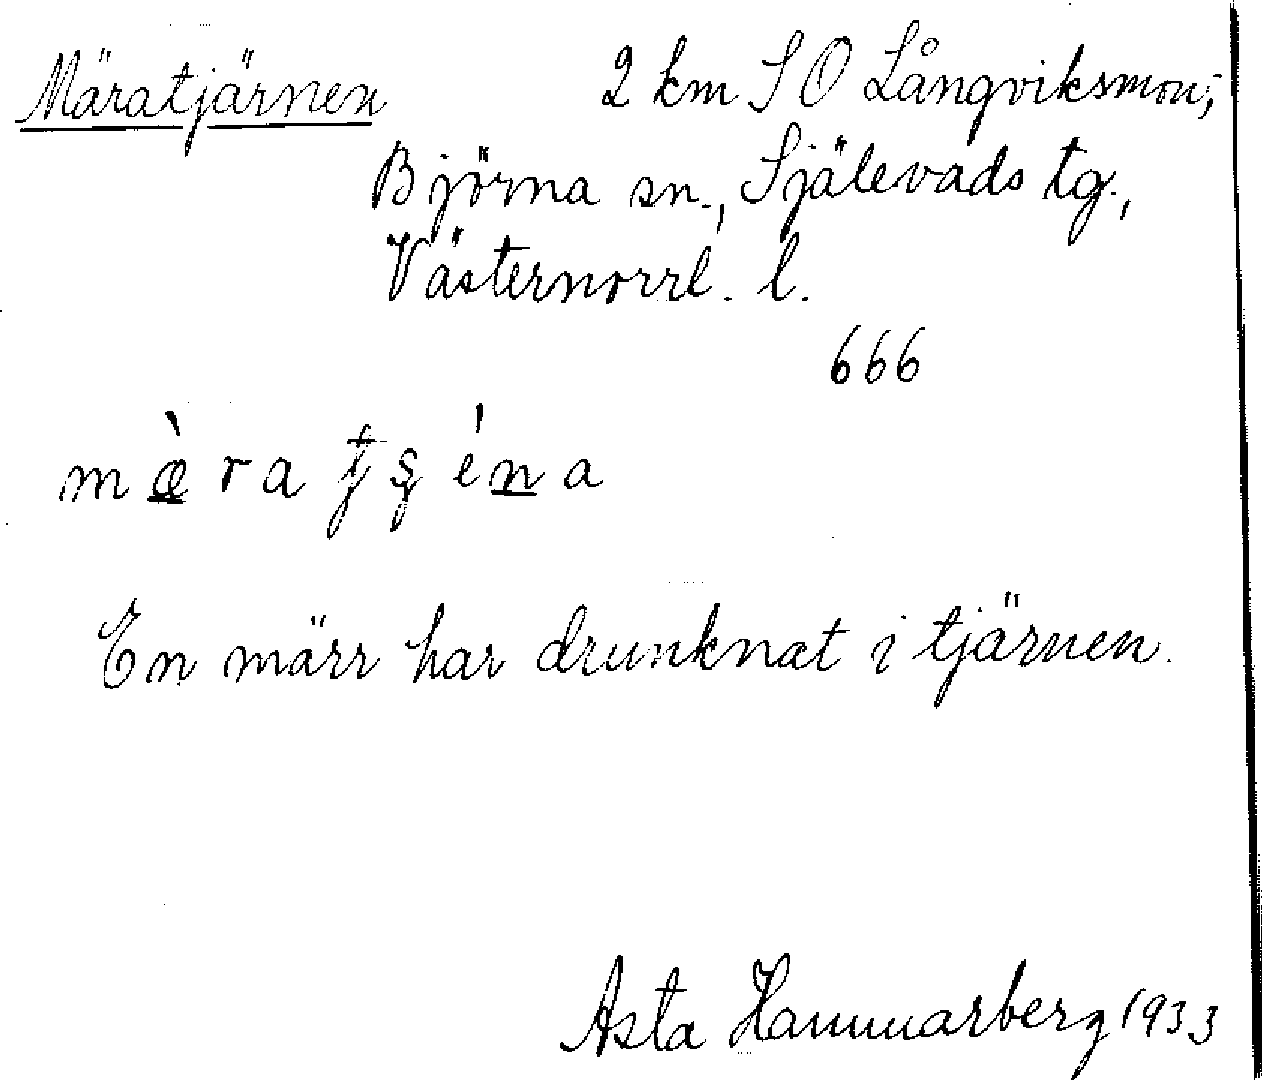 Märatjärnen 2 km SO Långviksmon,
Björna sn., Själevads tg.,
Västernorrl. l.
666
En märr har drunknat i tjärnen.
Asta Hammarberg 1933